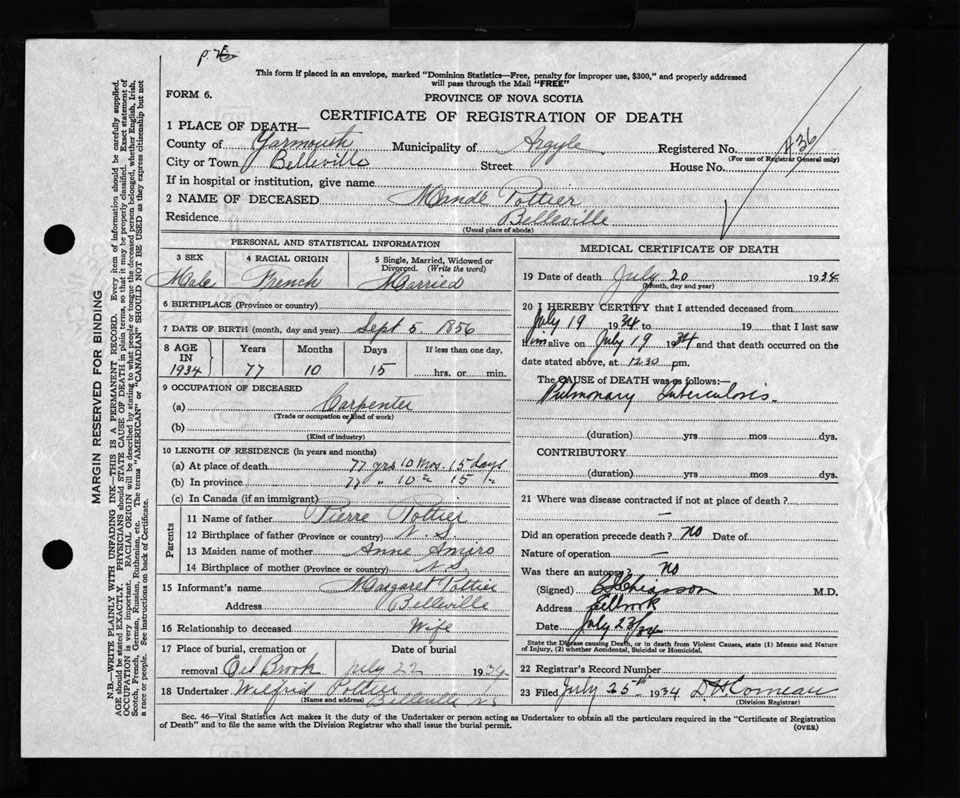 p. 76
This form if placed in an envelope, marked "Dominion Statistics—Free, penalty for improper use, $300," and properly addressed
will pass through the Mail "FREE"
FORM 6.
PROVINCE OF NOVA SCOTIA
CERTIFICATE OF REGISTRATION OF DEATH
1 PLACE OF DEATH—
County of Yarmouth Municipality of Argyle Registered No. 436
(For use of Registrar General only)
City or Town Belleville Street House No.
If in hospital or institution, give name
2 NAME OF DECEASED Mandé Pottier
Residence Belleville
(Usual place of abode)
PERSONAL AND STATISTICAL INFORMATION
3 SEX 4 RACIAL ORIGIN 5 Single, Married, Widowed or
Divorced. (Write the word)
Male French Married
6 BIRTHPLACE (Province or country)
7 DATE OF BIRTH (month, day and year) Sept 5. 1856
8 AGE Years Months Days If less than one day,
IN
1934 77 10 15 hrs. or min.
9 OCCUPATION OF DECEASED
(a) Carpenter
(Trade or occupation or kind of work)
(b)
(Kind of industry)
10 LENGTH OF RESIDENCE (in years and months)
(a) At place of death 77 yrs 10 mos. 15 days
(b) In province 77 " 10 " 15 "
(c) In Canada (if an immigrant)
Parents
11 Name of father Pierre Pottier
12 Birthplace of father (Province or country) N. S.
13 Maiden name of mother Anne Amiro
14 Birthplace of mother (Province or country) N.S.
15 Informant's name Margaret Pottier
Address Belleville
16 Relationship to deceased Wife
17 Place of burial, cremation or Date of burial
removal Eel Brook July 22 1934
18 Undertaker Wilfrid Pottier
(Name and address) Belleville N.S.
MEDICAL CERTIFICATE OF DEATH
19 Date of death July 20 1934
(Month, day and year)
20 I HEREBY CERTIFY that I attended deceased from
July 19 1934 to 19 that I last saw
him alive on July 19 1934 and that death occurred on the
date stated above, at 12.30 pm.
The CAUSE of DEATH was as follows:—
Pulmonary Tuberculosis
(duration) yrs mos dys.
CONTRIBUTORY
(duration) yrs mos dys.
21 Where was disease contracted if not at place of death?
—
Did an operation precede death? no Date of
Nature of operation —
Was there an autopsy? no
(Signed) Chiasson M.D.
Address Eelbrook
Date July 23/34
State the Disease causing Death, or in death from Violent Causes, state (1) Means and Nature
of Injury, (2) whether Accidental, Suicidal or Homicidal.
22 Registrar's Record Number
23 Filed July 25th 1934 D. H. Comeau
(Division Registrar)
Sec. 46—Vital Statistics Act makes it the duty of the Undertaker or person acting as Undertaker to obtain all the particulars required in the "Certificate of Registration
of Death" and to file the same with the Division Registrar who shall issue the burial permit.
(OVER)
MARGIN RESERVED FOR BINDING
N.B.—WRITE PLAINLY WITH UNFADING INK—THIS IS A PERMANENT RECORD. Every item of information should be carefully supplied.
AGE should be stated EXACTLY. PHYSICIANS should STATE CAUSE OF DEATH in plain terms, so that it may be properly classified. Exact statement of
OCCUPATION is very important. RACIAL ORIGIN will be described by stating to what people or tongue the deceased person belonged, whether English, Irish,
Scotch, French, German, Russian, Ruthenian, etc. The terms "AMERICAN" or "CANADIAN" SHOULD NOT BE USED as they express citizenship but not
a race or people. See instructions on back of Certificate.